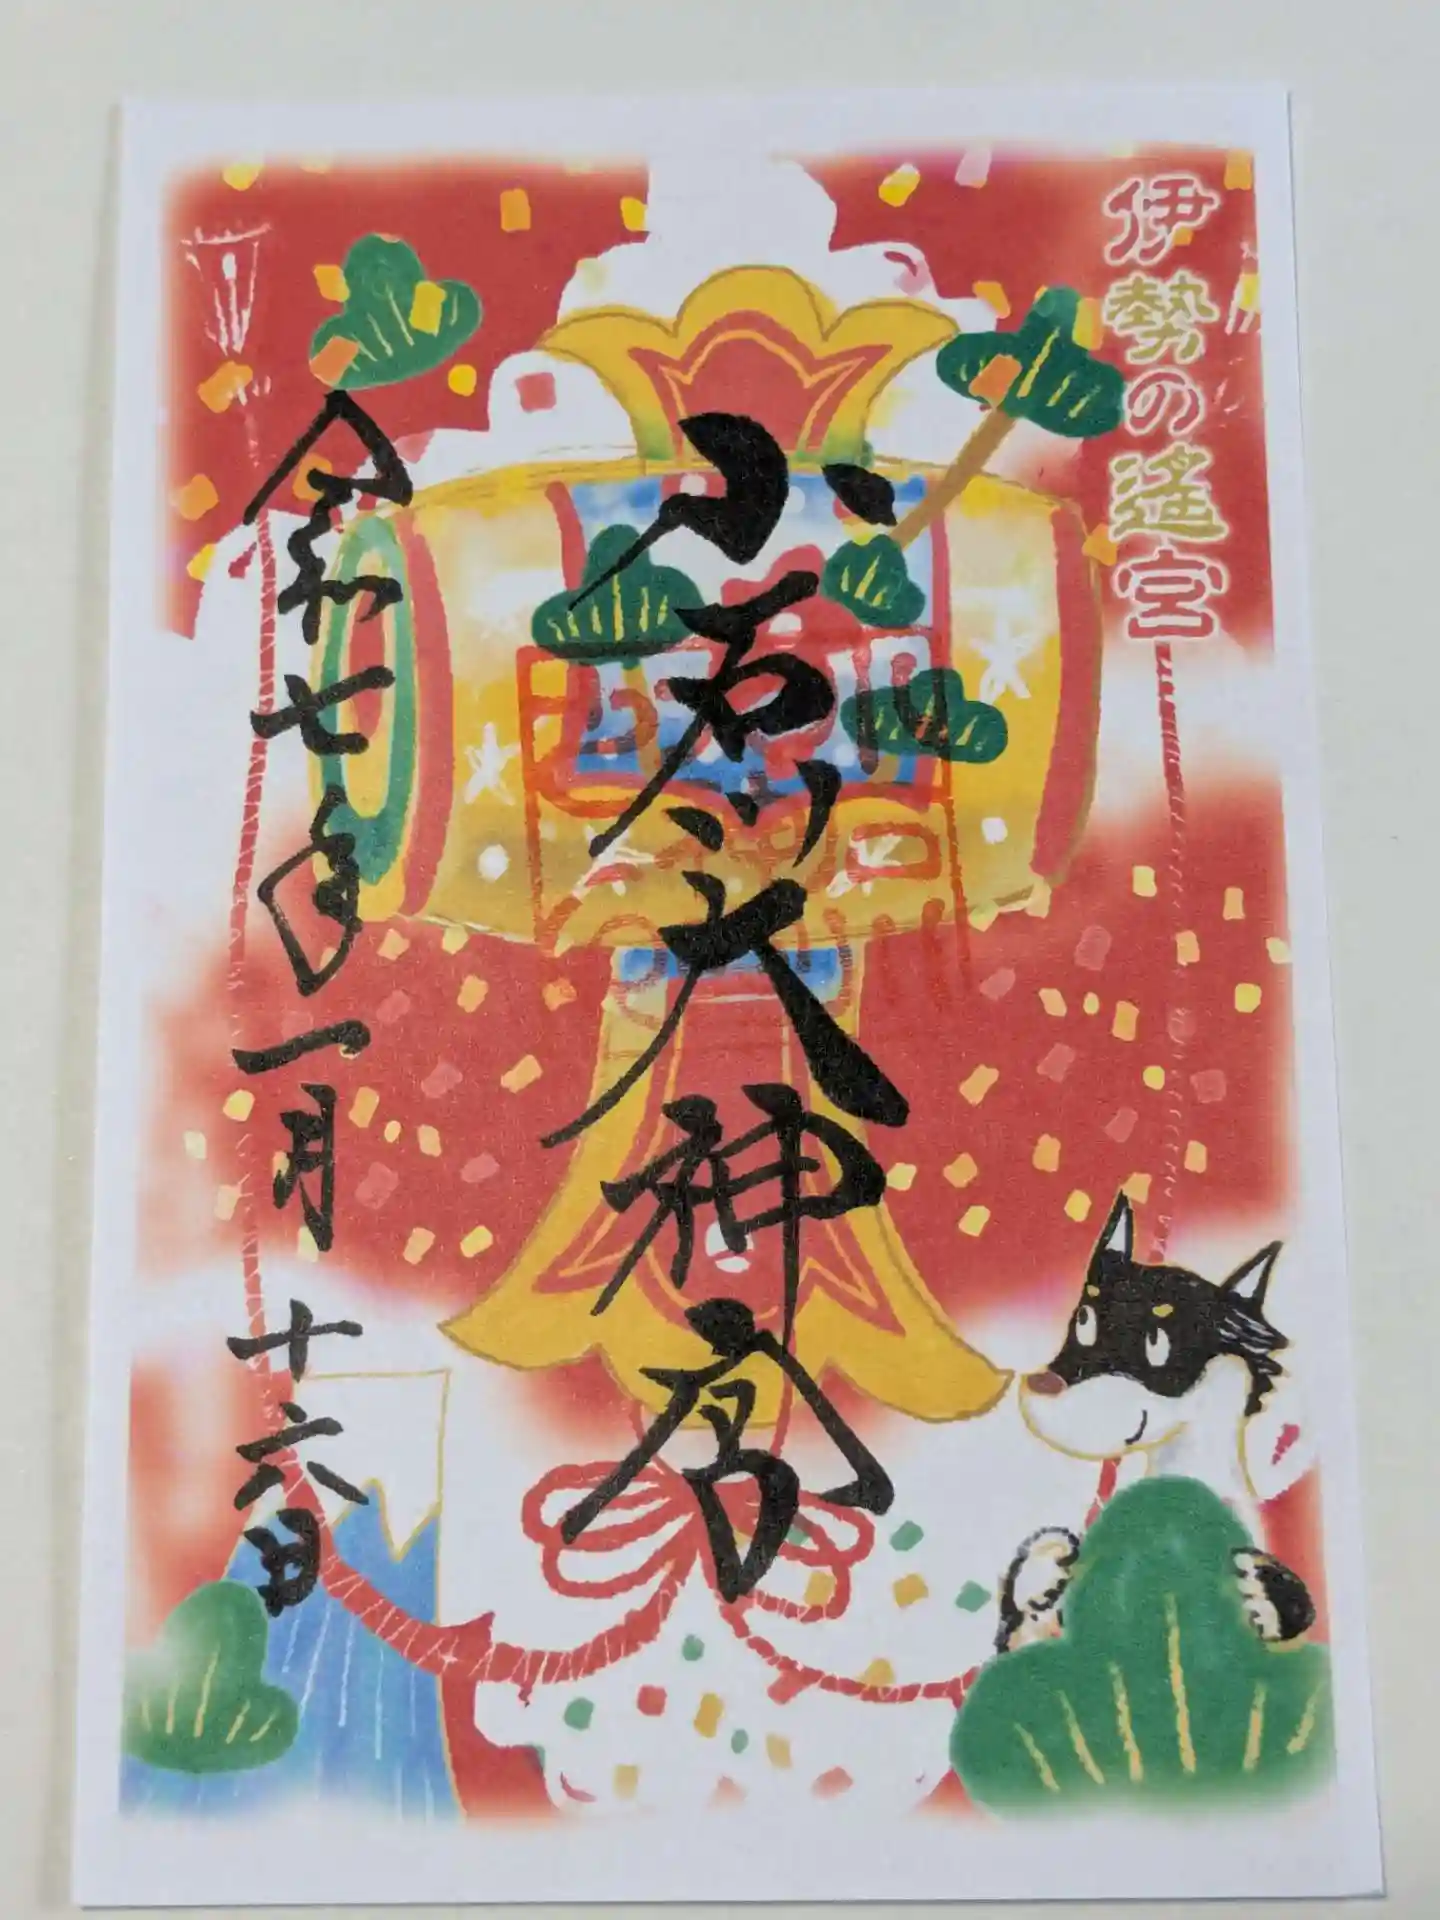 伊勢の遙宮
小石川大神宮
令和七年一月十六日